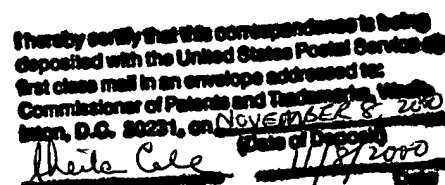 I hereby certify that this correspondence is being
deposited with the United States Postal Service as
first class mail in an envelope addressed to:
Commissioner of Patents and Trademarks, Wash-
ington, D.C. 20231, on NOVEMBER 8, 2000
(Date of Deposit)
Sheila Cole 11/8/2000
Date